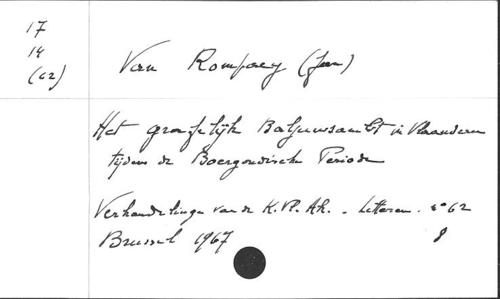 17
14
(62)
Van Rompaey (Jan)
Het grafelijk Baljuwsambt in Vlaanderen
tijdens de Boergondische Periode
Verhandelingen van de K.Vl.Ak. - Letteren. n° 62
Brussel 1967 8